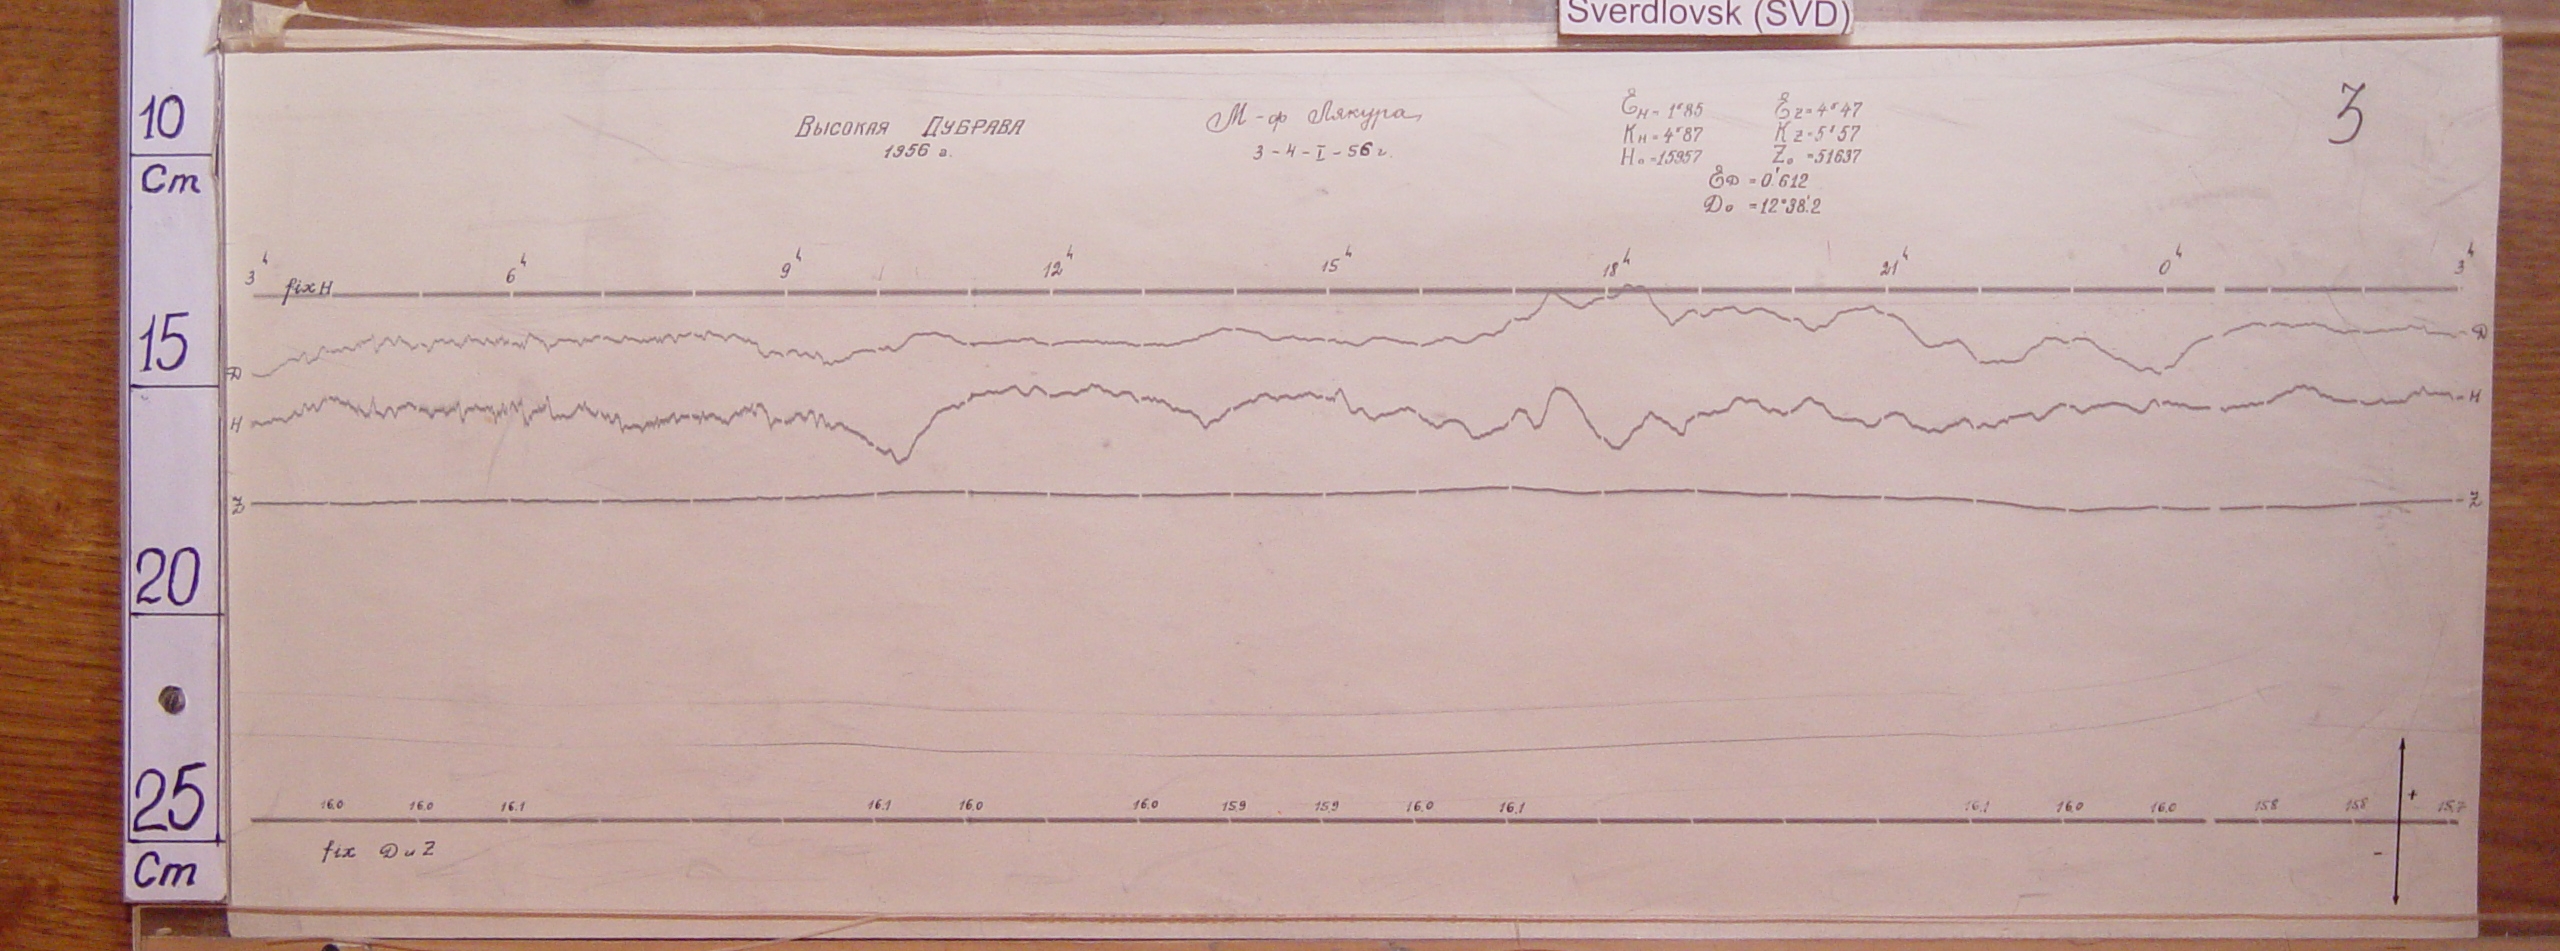 Sverdlovsk (SVD)
10
Cm
15
20
25
Cm
3
Высокая Дубрава
1956 г.
М-ф Лякура
3-4-I-56 г.
Ԑн = 1ˠ85 Ԑz = 4ˠ47
Kн = 4ˠ87 Kz = 5ˠ57
H₀ = 15957 Z₀ = 51637
ԐD = 0'612
D₀ = 12°38'.2
3ʰ 6ʰ 9ʰ 12ʰ 15ʰ 18ʰ 21ʰ 0ʰ 3ʰ
fix H
D D
H H
Z Z
16.0 16.0 16.1 16.1 16.0 16.0 15.9 15.9 16.0 16.1 16.1 16.0 16.0 15.8 15.8 15.7
+
-
fix D и Z